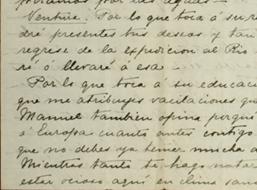 Ventura. Por lo que toca á su re
dré presentes tus deseos y tan
regrese de la expedicion al Rio
ré ó llevaré á esa —
Por lo que toca á su educac
que me atribuyes vacilaciones qu
Manuel tambien opina
á Europa cuanto antes contigo
que no debes ya tener mucha
Mientras tanto te hago notar
estar ocioso aqui en clima san